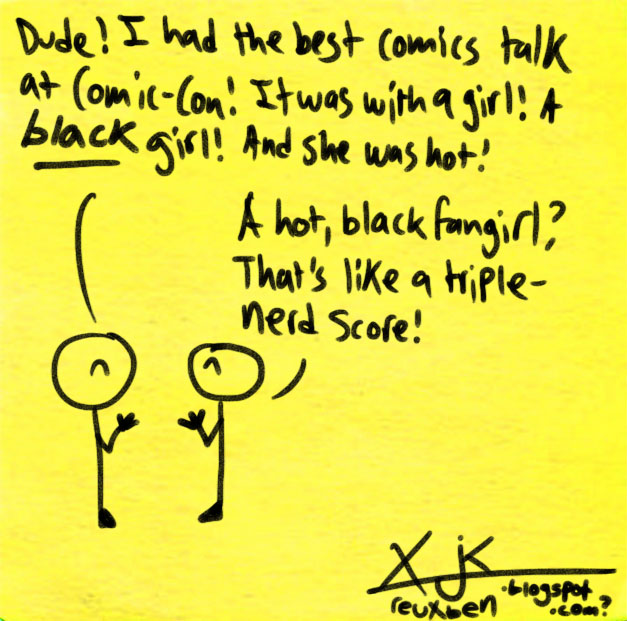 Dude! I had the best comics talk
at Comic-Con! It was with a girl! A
black girl! And she was hot!
A hot, black fangirl?
That's like a triple-
nerd score!
XJK
reuxben .blogspot
.com?